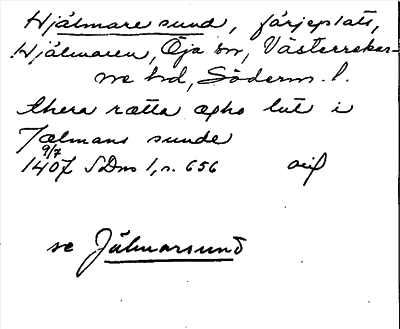 Hjälmare sund, färjeplats,
Hjälmaren, Öja sn, Västerrekar-
ne hd, Söderm. l.
thera rætta ægho lut i
Jælmans sunde
9/7
1407 SDns 1, s. 656
se Jälmarsund